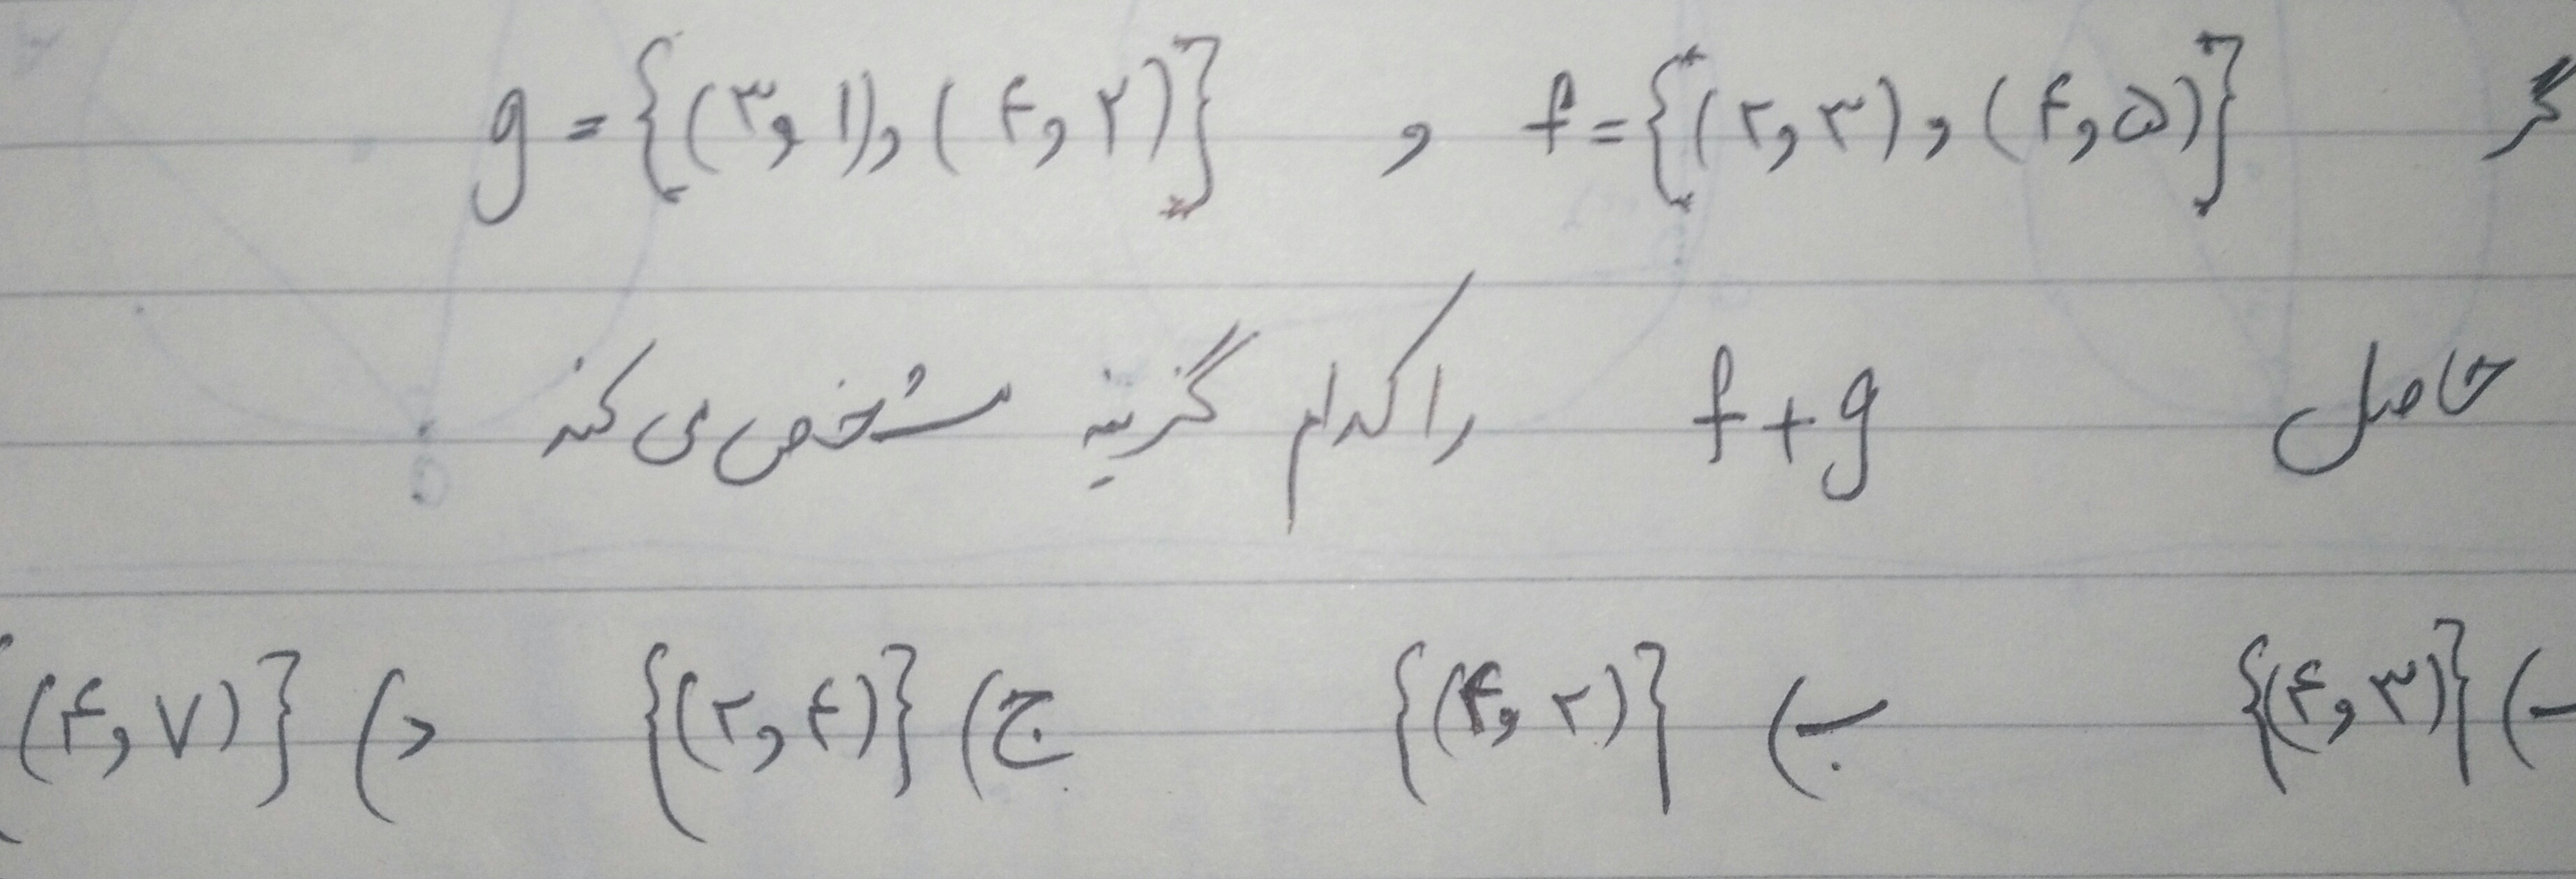 گر f = {(۲,۳), (۴,۵)} , g = {(۳,۱), (۴,۲)}
حاصل f+g را کدام گزینه مشخص می کند
{(۴,۳)} ب) {(۴,۲)} ج) {(۲,۴)} د) (۴,۷)}